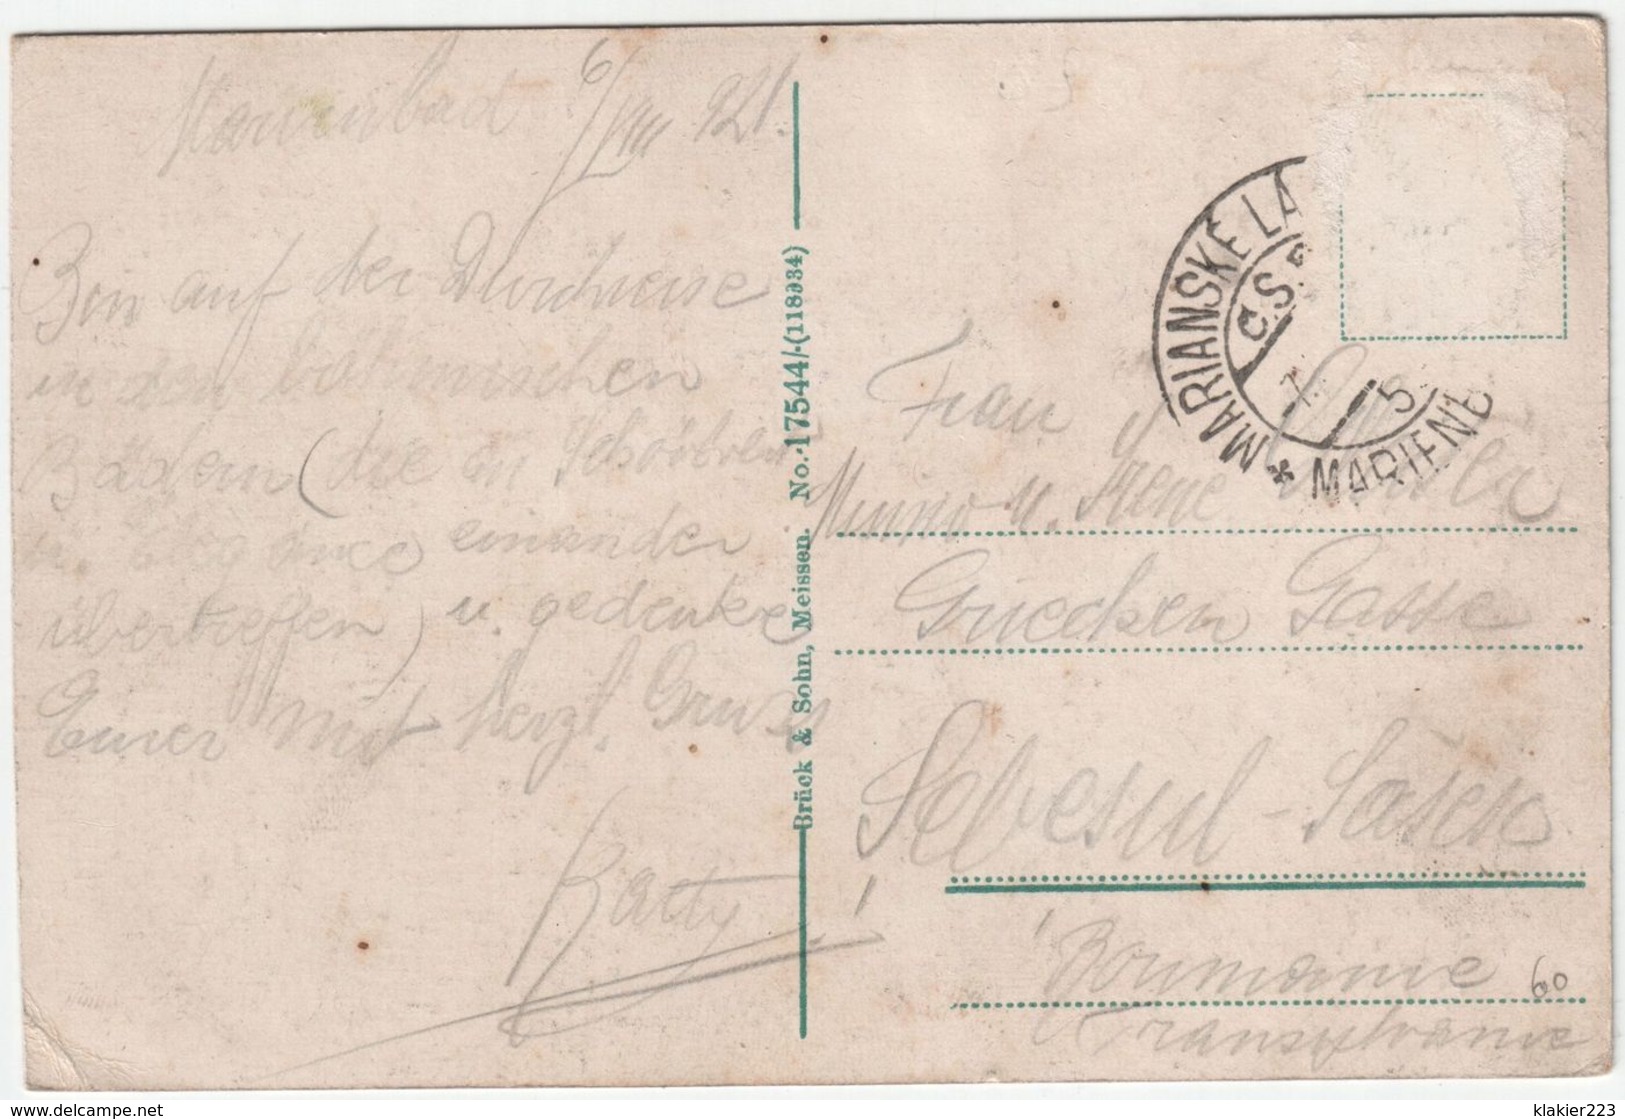 Marienbad 6/VIII 921.
Bin auf der Durchreise
in den böhmischen
Bädern (die an Schönheit
u. einander
übertreffen) u. gedenke
Eurer mit herzl. Gruss
Brück & Sohn, Meissen. No. 17544/-(118934)
* MARIANSKÉ LÁ
Č.S.
MARIENB
Frau
Minno u. Irene
Griechen Gasse
Sebesul-Săsesc
Roumanie
Transylvanie
60
delcampe.net
klakier223